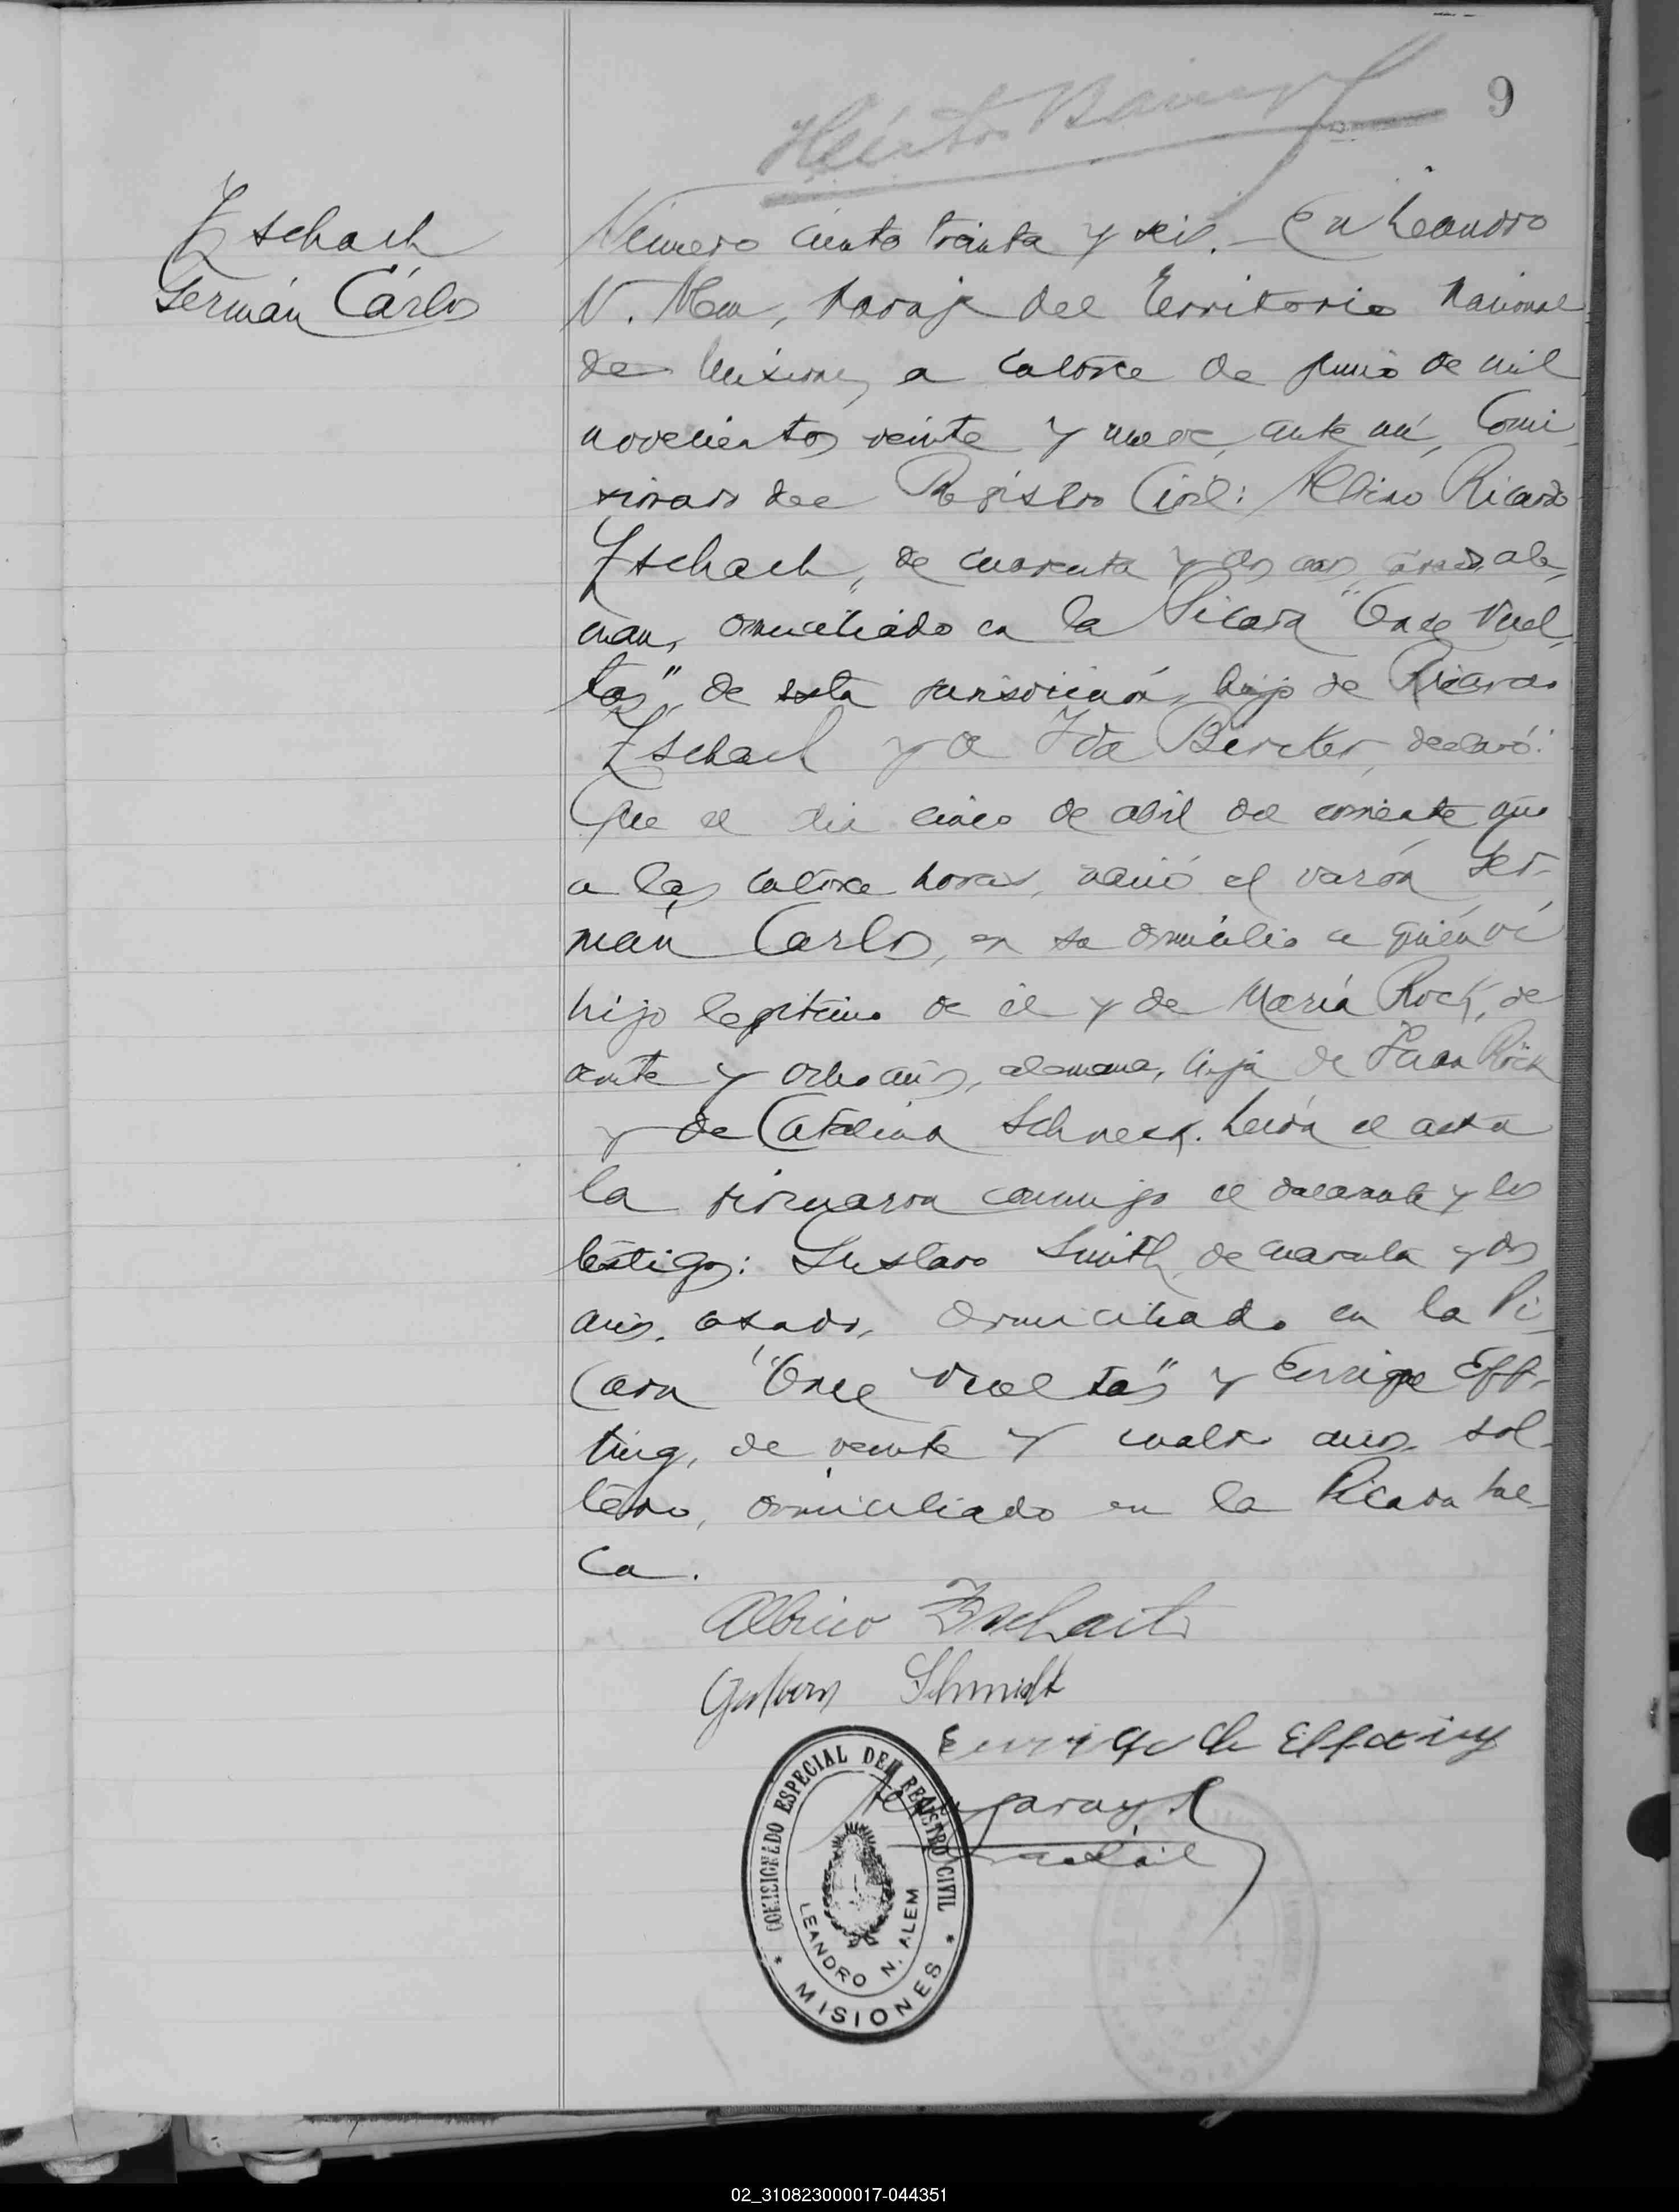 9
Zschach
Germán Cárlos
Número ciento treinta y seis.- En Leandro
N. Alem, paraje del Territorio Nacional
de Misiones, a catorce de junio de mil
novecientos veinte y nueve, ante mí, Comi-
sionado del Registro Civil: Albino Ricardo
Zschach, de cuarenta y dos años, casado, ale-
mán, domiciliado en la Picada "Once Vuel-
tas", de esta jurisdicción, hijo de Ricardo
Zschach y de Ida Bircker, declaró:
Que el día cinco de abril del corriente año
a las catorce horas, nació el varón Ger-
mán Carlos, en su domicilio a quién ví
hijo legítimo de él y de María Rock, de
veinte y ocho años, alemana, hija de Juan Rock
y de Catalina Schneck. Leída el acta
la firmaron conmigo el declarante y los
testigos: Gustavo Smith, de cuarenta y dos
años, casado, domiciliado en la Pi-
cada "Once Vueltas" y Enrique Eff-
ting, de veinte y cuatro años, sol-
tero, domiciliado en la Picada Sue-
ca.
Albino Zschach
Gustavo Schmidt
Enrique Effting
COMISIONADO ESPECIAL DEL REGISTRO CIVIL
LEANDRO N. ALEM
* MISIONES *
02_310823000017-044351